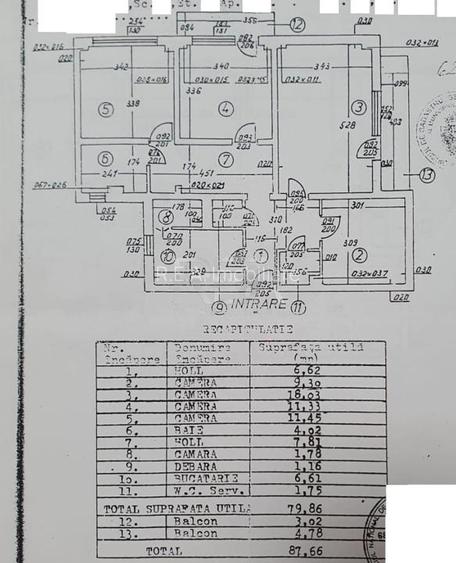 Sc. Et. Ap.
254
130
094
183
181
356
12
082
206
030
032+016
020
343
336
340
343
032+013
028+016
030+015
032+011
099
5
338
4
3
528
403
092
201
092
203
092
205
020
030
13
6
174
174
7
241
451
020+021
067+026
054
053
094
200
166
301
8
178
100
100
310
182
091
200
075
130
070
200
201
10
1
116
077
205
309
010
2
120
156
032+037
030
030
329
092
205
020
R.E.A. Imobiliare
9
INTRARE
11
RECAPITULATIE
Nr. Incăpere Denumire Incăpere Suprafața utilă (mp)
1. HOLL 6,62
2. CAMERA 9,30
3. CAMERA 18,03
4. CAMERA 11,33
5. CAMERA 11,45
6. BAIE 4,02
7. HOLL 7,81
8. CAMARA 1,78
9. DEBARA 1,16
10. BUCATARIE 6,61
11. W.C. Serv. 1,75
TOTAL SUPRAFATA UTILA 79,86
12. Balcon 3,02
13. Balcon 4,78
TOTAL 87,66